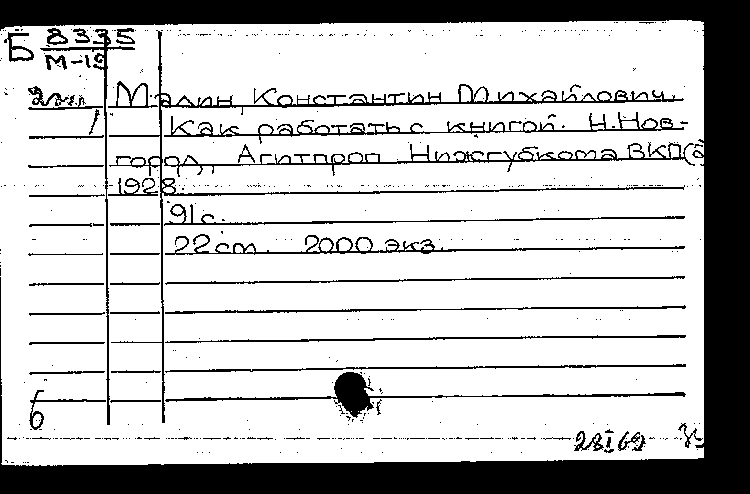 Б 8335
М-19
2эк.
Малин, Константин Михайлович.
1
Как работать с книгой. Н.Нов-
город, Агитпроп Нижгубкома ВКП(б)
1928.
91 с.
22 см. 2000 экз.
б
28 I 69